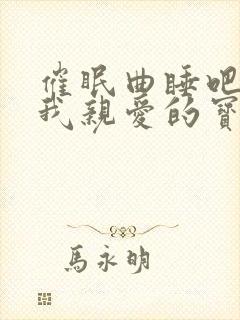 催眠曲睡吧
我親愛的寶
馬永明